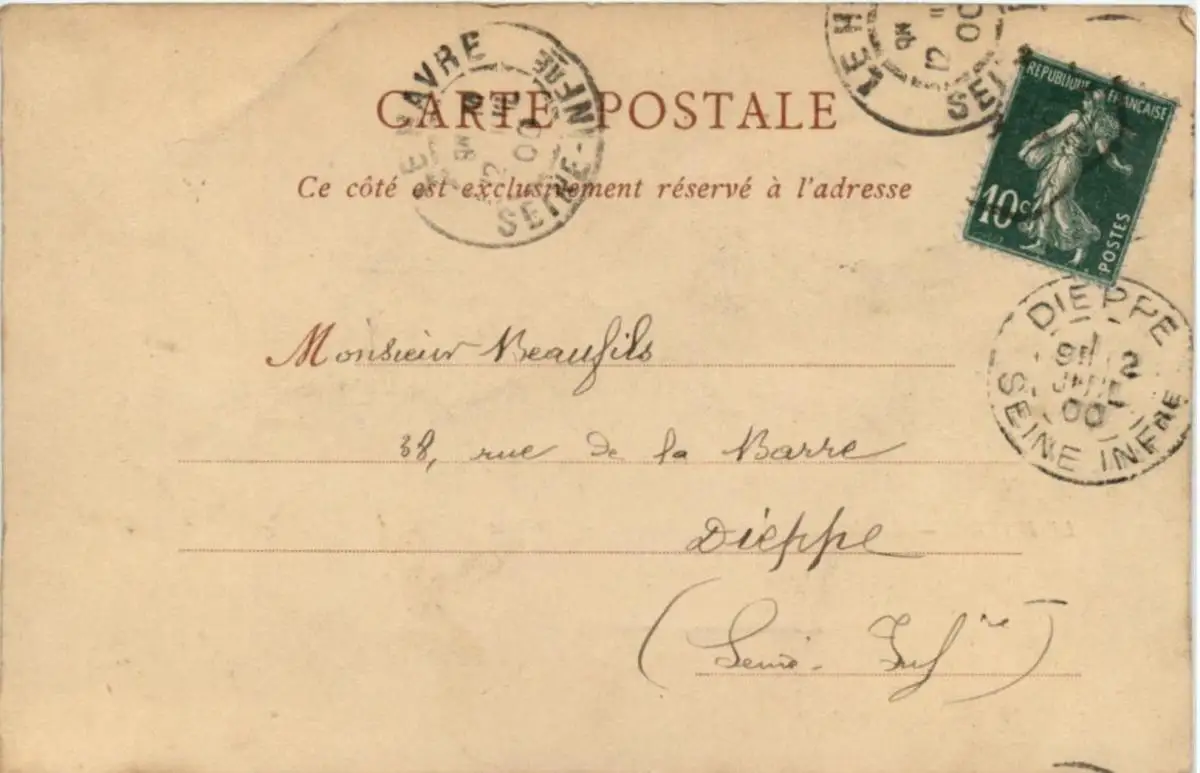 CARTE POSTALE
Ce côté est exclusivement réservé à l'adresse
LE HAVRE
12
00
SEINE-INFRE
LE H
12
00
SEI
REPUBLIQUE FRANCAISE
10c
POSTES
DIEPPE
2
00
SEINE INFRE
Monsieur Beaufils
38, rue de la Barre
Dieppe
(Seine-Infre)